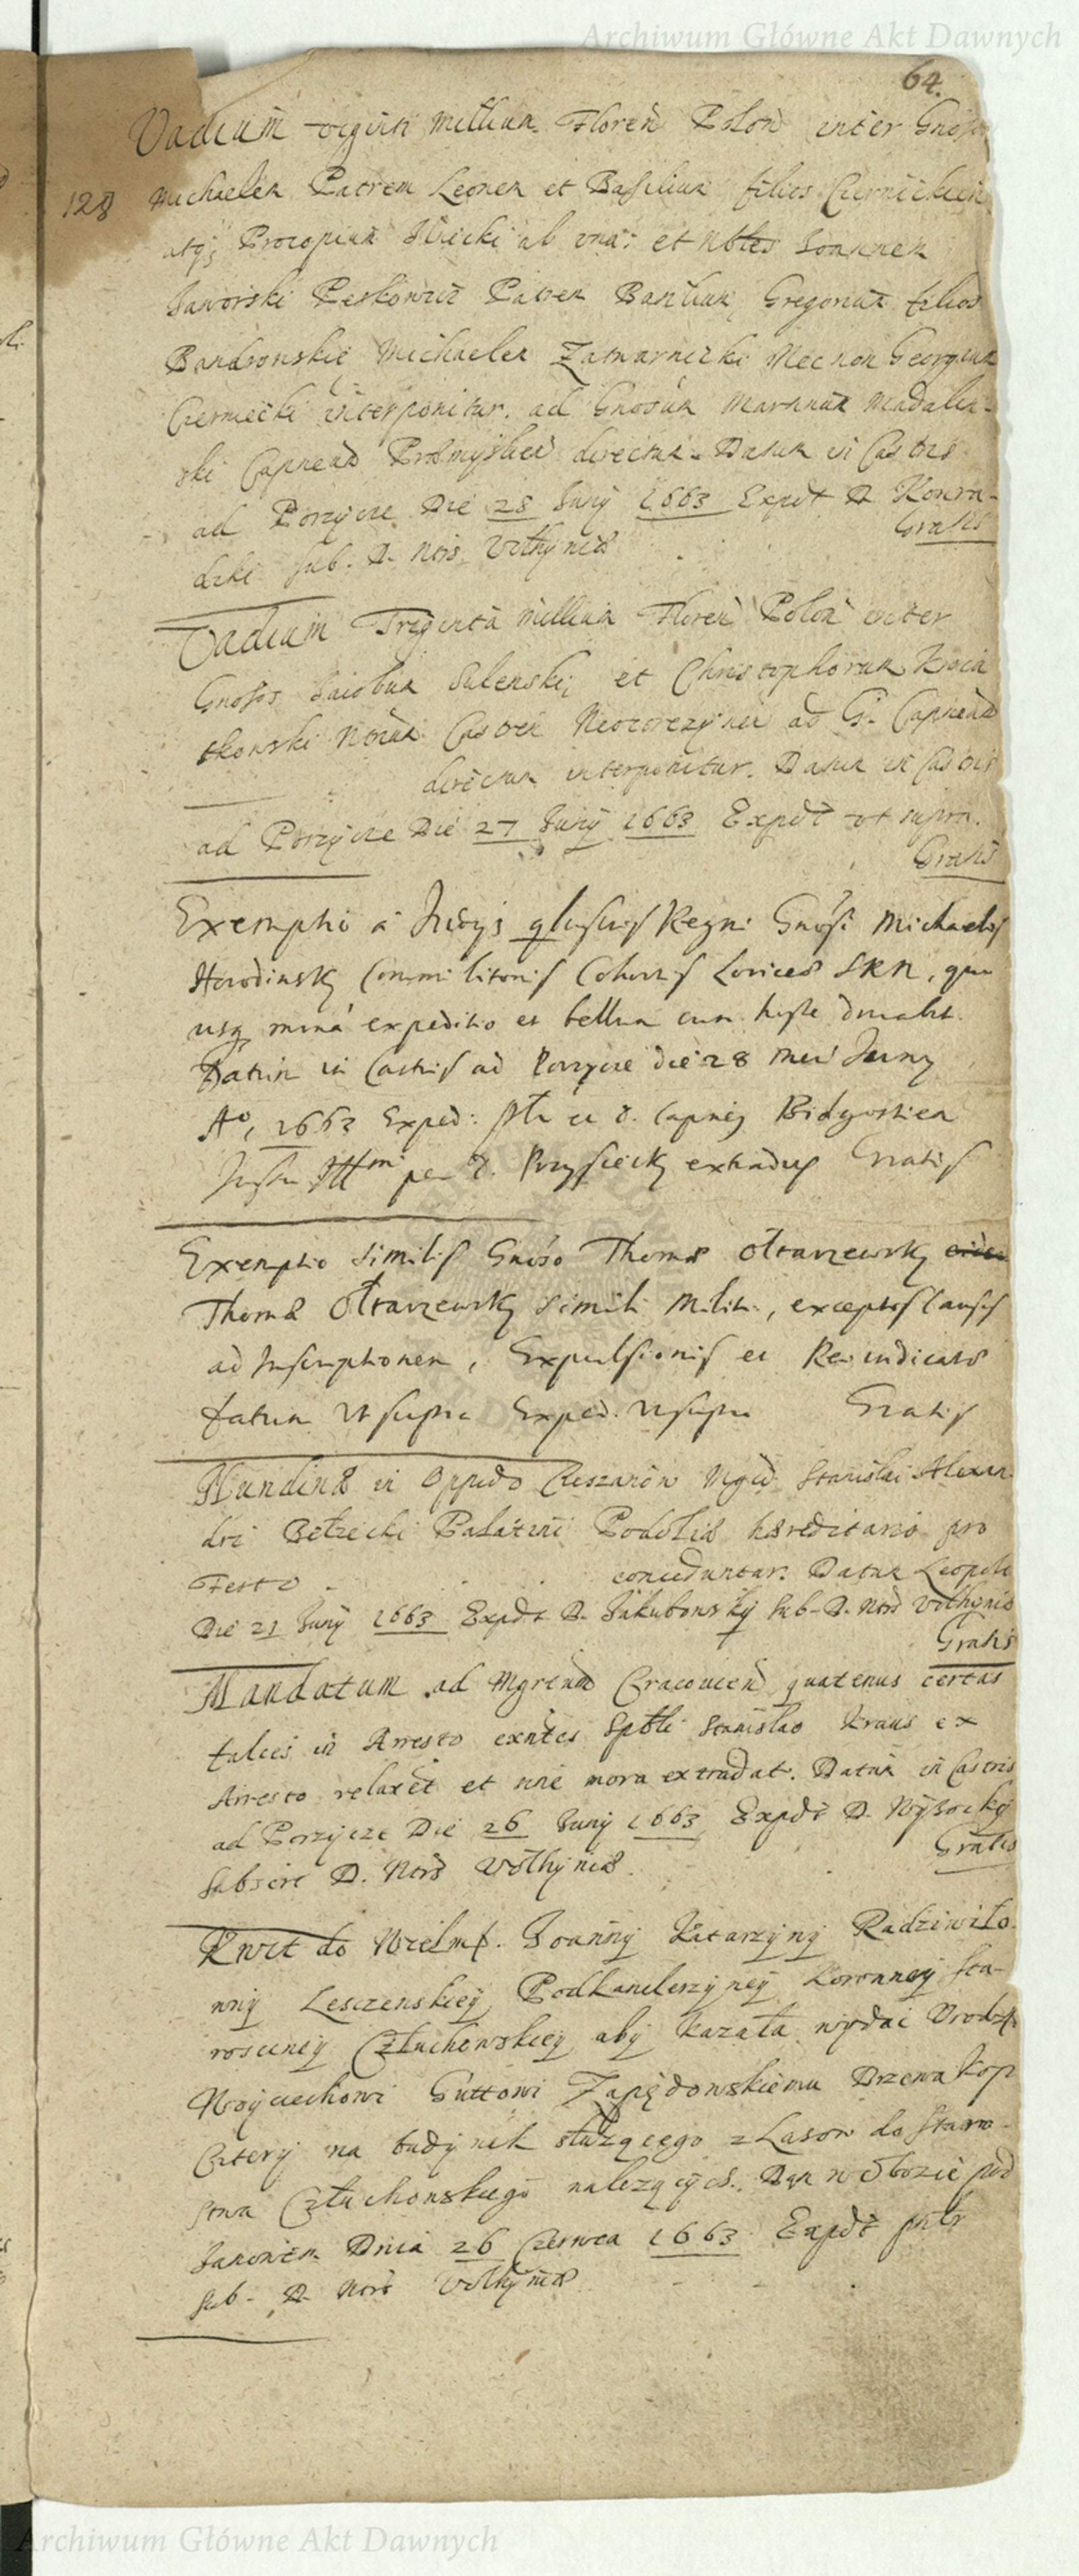 Archiwum Główne Akt Dawnych
64.
Vadium viginti millium Floren Polon inter Gnosos
128
Michaelem Patrem Leonem et Basilium filios Czernieckich
atq; Procopium Ilnicki ab una: et Nobles Joannem
Jaworski Peskowicz Patrem Basilium, Gregorium filios
Bandrowskie Michaelem Zatwarnicki Necnon Georgium
Czerniecki interponitur. ad Gnosum Martinum Madalin-
ski Capneum Præmysliens directum. Datum in Castris
ad Porzycze Die 28 Juny 1663 Expdt D Konra-
dzki sub. D. Nris Volhyniæ
Gratis
Vadium Triginta millium Floren Polon inter
Gnosos Jacobum Sulenski, et Christophorum Kwia
tkowski Notar Castren Neocorczynen ad G. Capneum
directum interponitur. Datum in Castris
ad Porzycze Die 27 Juny 1663 Expdt ut supra.
Gratis
Exemptio a Judiys Regni Gnosi Michaelis
Horodinsky Commilitonis Cohortis Lorices SRM, quo
usq; expeditio et bellum cum hoste durabit.
Datum in Castris ad Porzycze die 28 mens Juny
Ao, 1663 Exped: Capnej Bidgostien
Jussu Illmi per D. Przysiecky extradus Gratis
Exemptio similis Gnoso Thomæ Ołtarzewsky
Thomæ Ołtarzewsky simili Militi, exceptis causis
ad Inscriptionem, Expulsionis et Reindicatæ
Datum Ut supra Exped. Ut supra Gratis
Nundinæ in Oppido Cieszanow Mgci Stanislai Alexan
dri Bełzecki Palatini Podoliæ hæreditario pro
Festo conceduntur. Datum Leopoli
Die 21 Juny 1663 Expdt D. Jakubowsky sub. D. Nris Volhyniæ
Gratis
Mandatum ad Mgrtum Cracovien quatenus certas
falces in Arresto exntes Spbli Stanislao Kraus ex
Arresto relaxet et sine mora extradat. Datum in Castris
ad Porzycze Die 26 Juny 1663 Expdt D. Wysocky
Subscre D. Nris Volhyniæ.
Gratis
Kwit do Wielmſ. Joanny Katarzyny Radziwiło
wny Lesczenskiey Podkanclerzyney Koronney sta-
roscincy Człuchowskiey aby kazała wydac Urodz.
Woyciechowi Guttowi Zapędowskiemu Drzewa kop
Cztery na budynek służącego z Lasow do starο-
stwa Człuchowskiego nalezących. Dan w Obozie pod
Janowem Dnia 26 Czerwca 1663 Expdt
sub. D. Nris Volhyniæ
Archiwum Główne Akt Dawnych